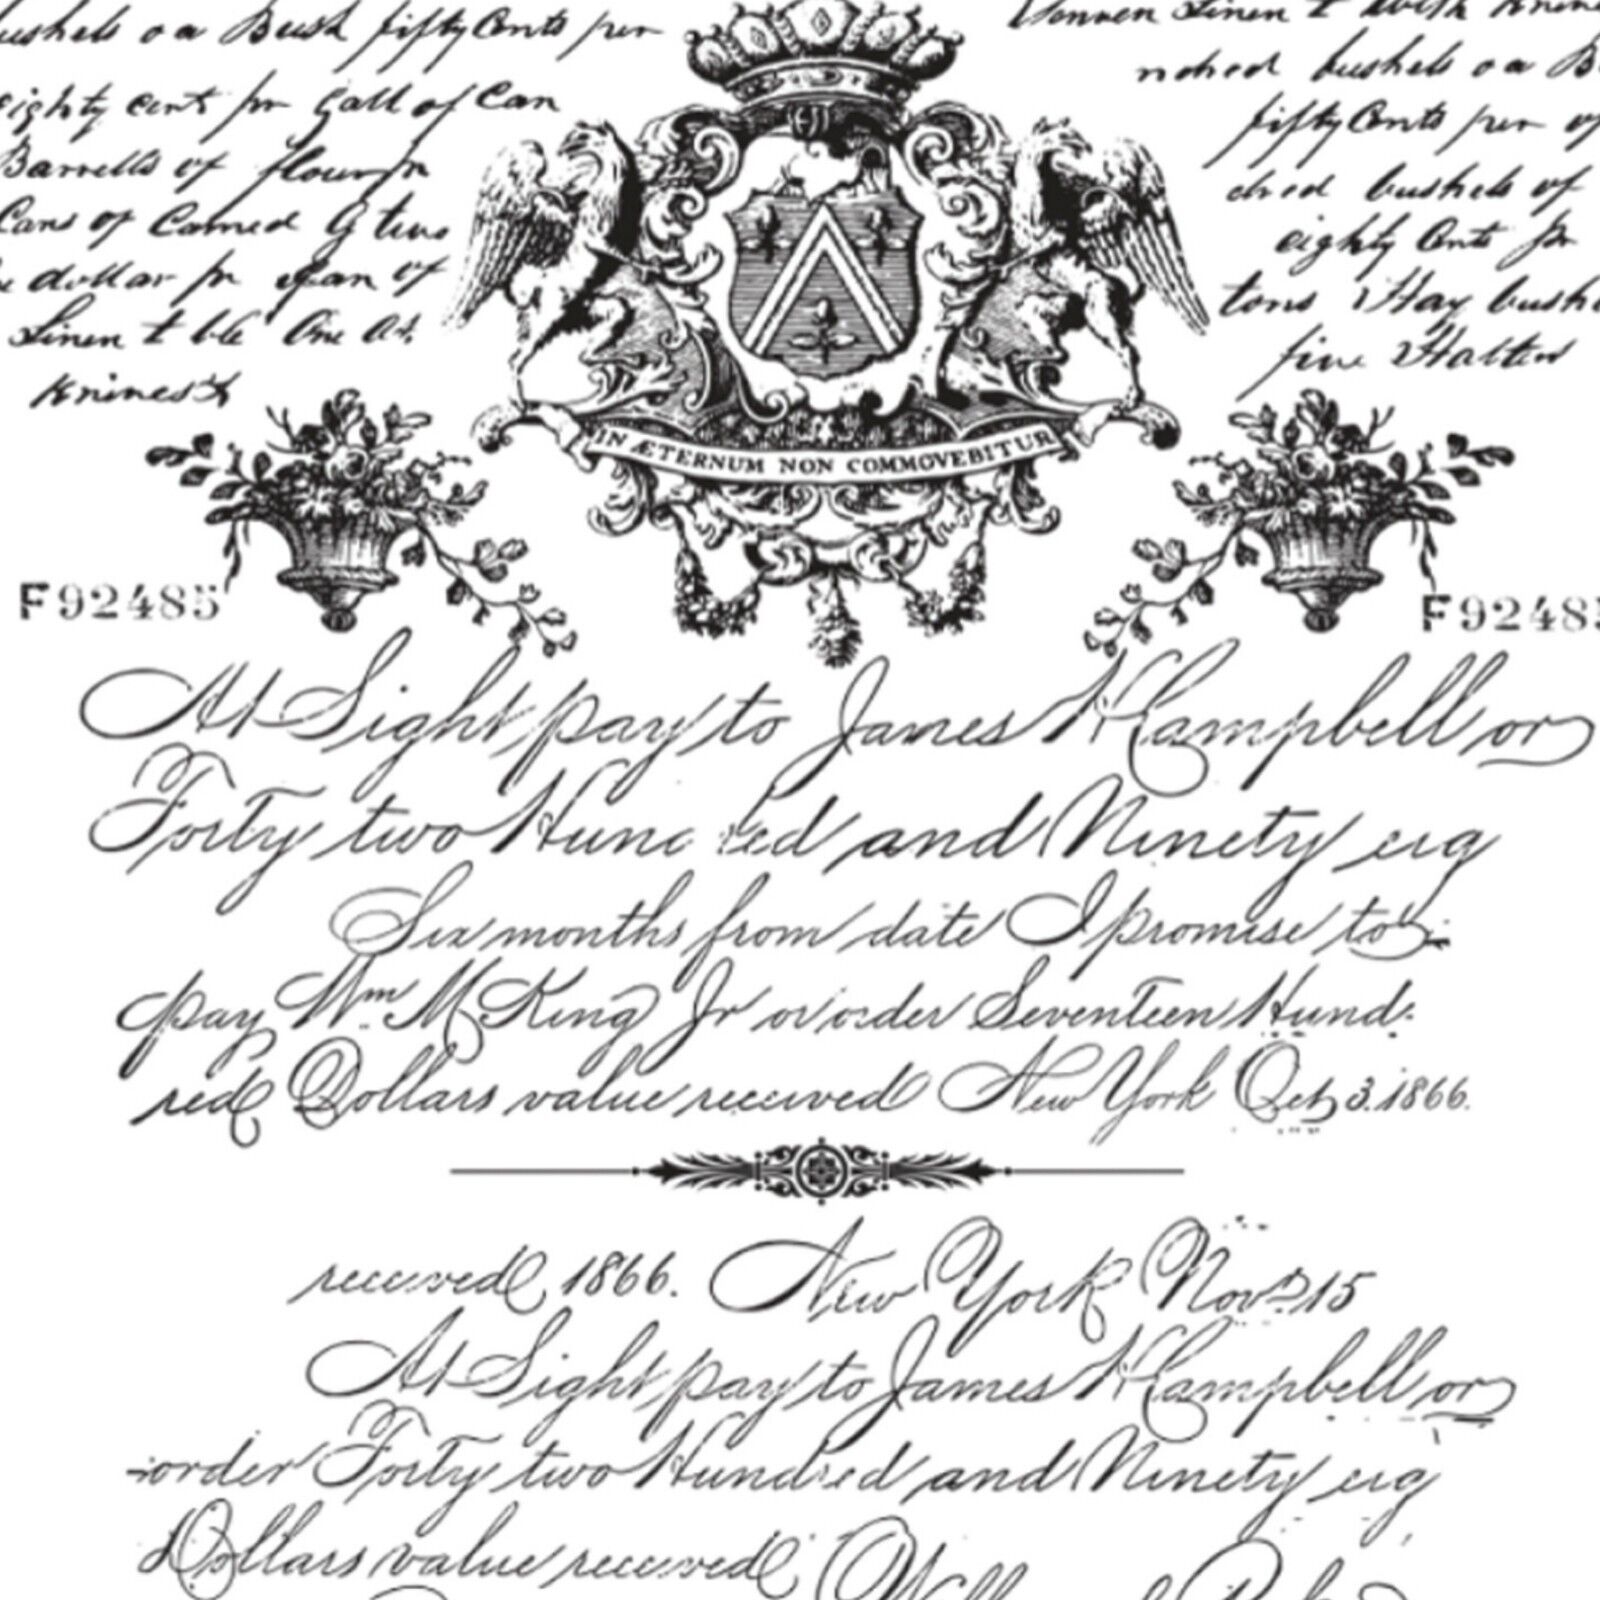 bushels oa Bush fifty Cents per
eighty cent pr Gall of Can
Barrells of flour pr
Cans of Carned G two
dollar pr Gan of
Linen t ble One at
Linen t with
ndred bushels oa
fifty Cents per
dred bushels of
eighty Cents pr
tons Hay bush
five Halters
IN ÆTERNUM NON COMMOVEBITUR
F92485
F9248
At Sight pay to James K Campbell or
Forty two Hundred and Ninety eig
Six months from date I promise to
pay Wm McKing Jr or order Seventeen Hund
red Dollars value received New York Oct 3. 1866.
received 1866. New York Nov 15
At Sight pay to James K Campbell or
order Forty two Hundred and Ninety eig
Dollars value received